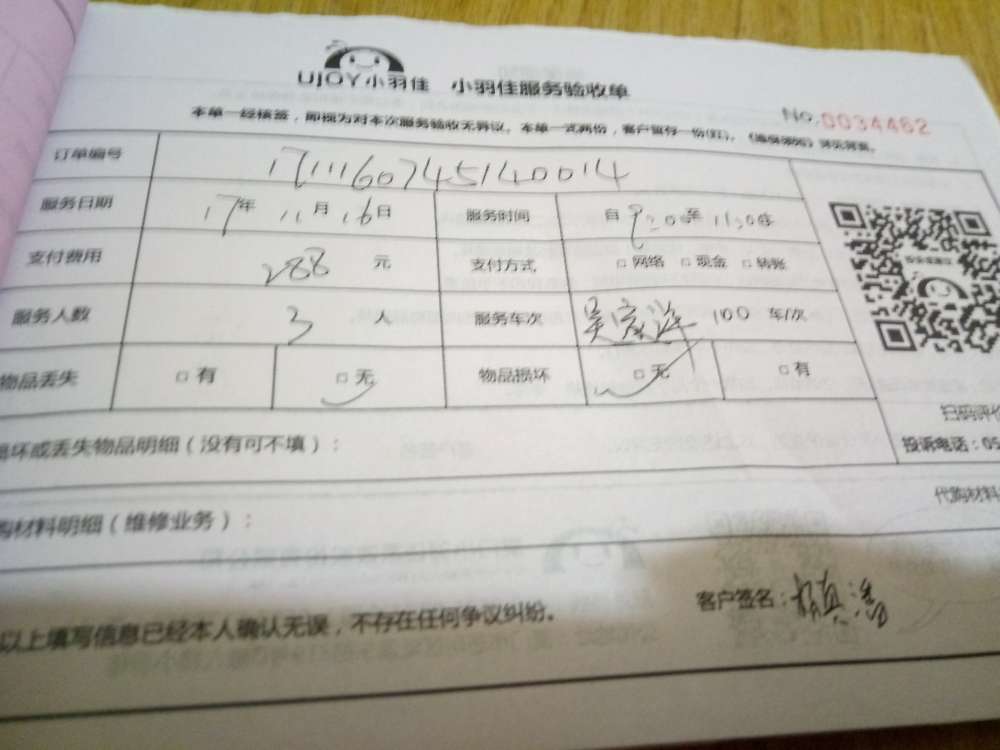 UJOY小羽佳 小羽佳服务验收单
No.0034462
本单一经核签，即视为对本次服务验收无异议。本单一式两份，客户留存一份(红)。
订单编号 1711160745140014
服务日期 17年 11月 16日 服务时间 自 9:00至 11:30
支付费用 288 元 支付方式 □网络 □现金 □转账
服务人数 3 人 服务车次 100 车/次
物品丢失 □有 □无 物品损坏 □无 □有
扫码评价
坏或丢失物品明细（没有可不填）：
投诉电话：05
购材料明细（维修业务）：
代购材料
以上填写信息已经本人确认无误，不存在任何争议纠纷。
客户签名：